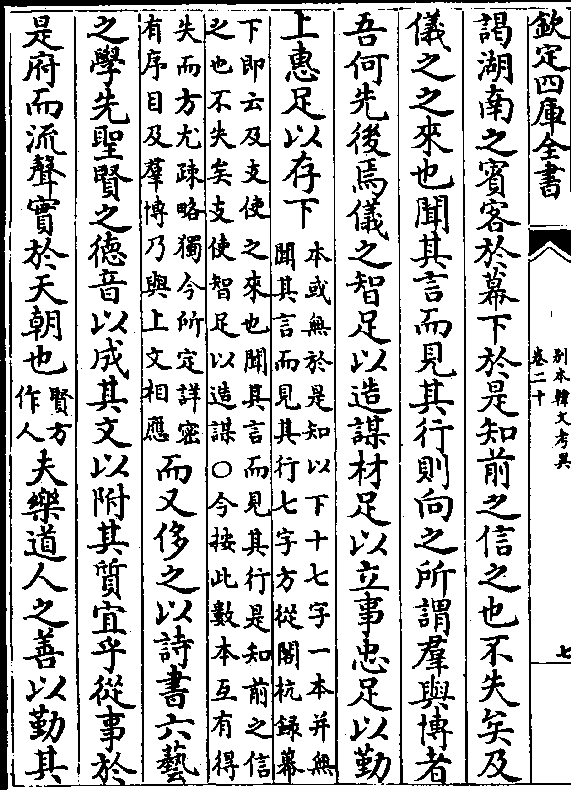 欽定四庫全書
别本韓文考異
卷二十
七
謁湖南之賓客於幕下於是知前之信之也不失矣及
儀之之來也聞其言而見其行則向之所謂羣與博者
吾何先後焉儀之智足以造謀材足以立事忠足以勤
上惠足以存下
本或無於是知以下十七字一本并無
聞其言而見其行七字方從閣杭録幕
下即云及支使之來也聞其言而見其行是知前之信
之也不失矣支使智足以造謀○今按此數本互有得
失而方尤疎略獨今所定詳密
有序目及羣博乃與上文相應
而又侈之以詩書六藝
之學先聖賢之德音以成其文以附其質宜乎從事於
是府而流聲實於天朝也
賢方
作人
夫樂道人之善以勤其